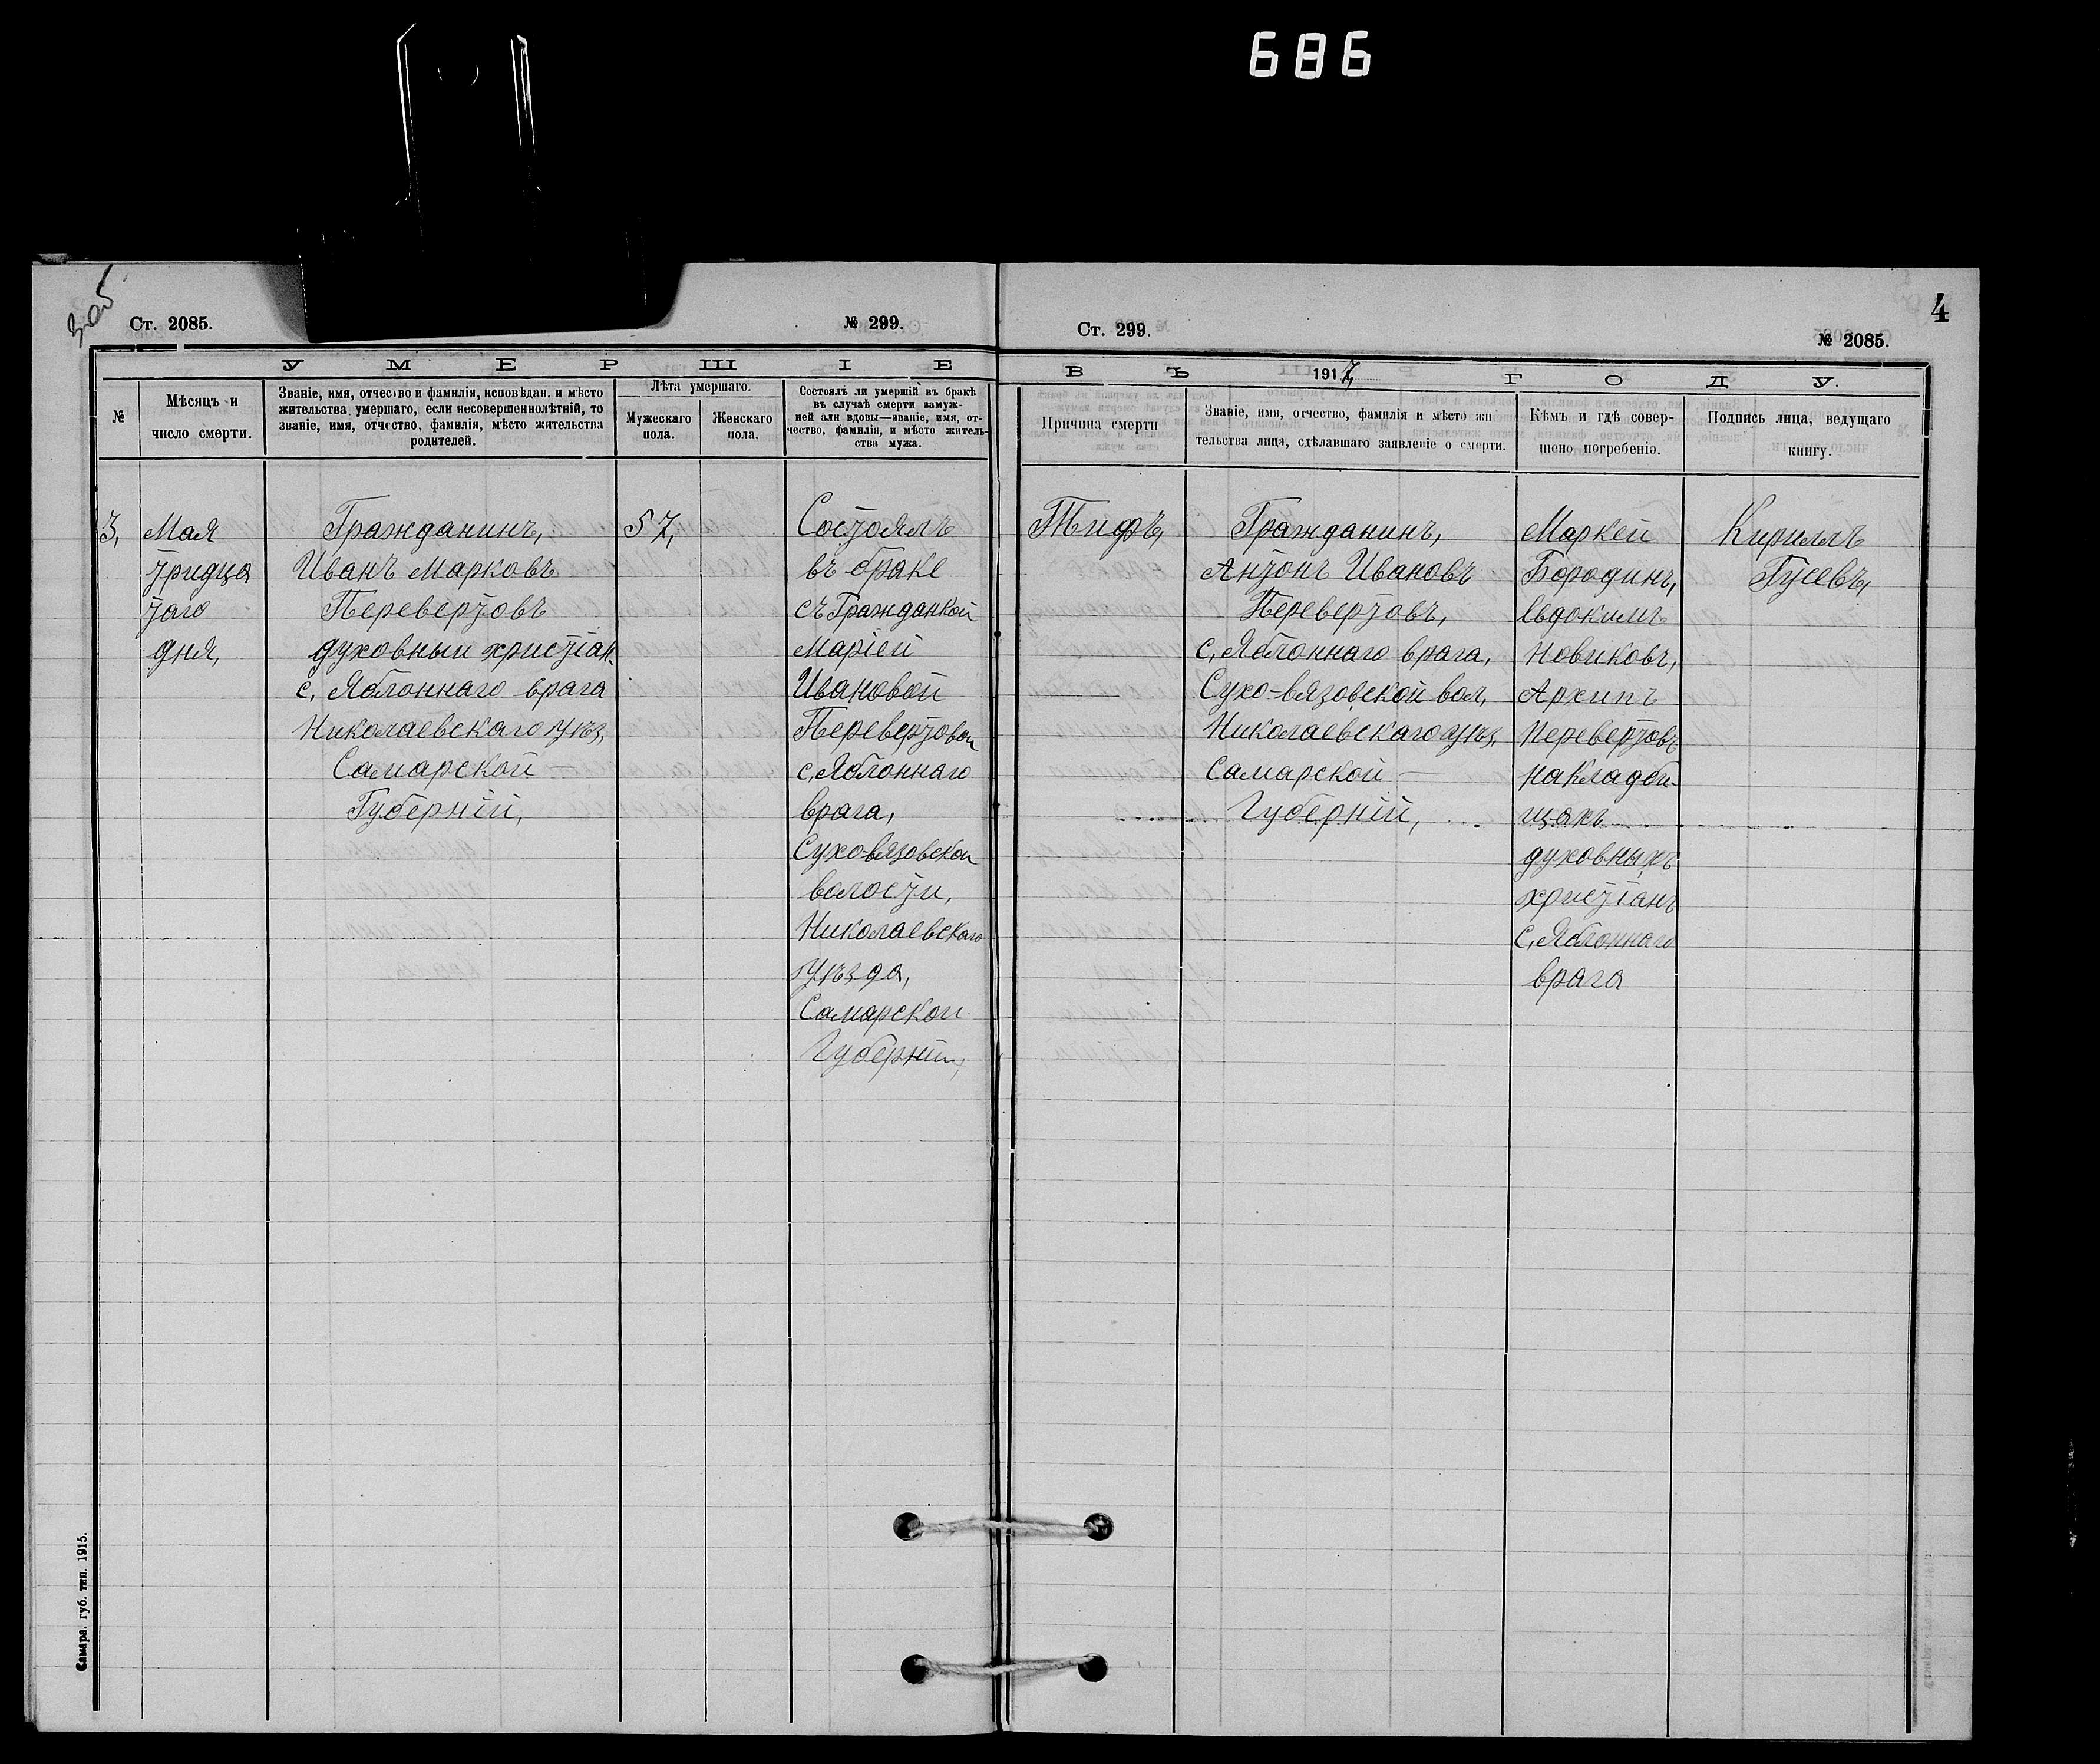 686
Ст. 2085.
№ 299.
Ст. 299.
4
№ 2085.
УМЕРШІЕ
ВЪ 1917, ГОДУ.
№
Мѣсяцъ и
число смерти.
Званіе, имя, отчество и фамилія, исповѣдан. и мѣсто
жительства умершаго, если несовершеннолѣтній, то
званіе, имя, отчество, фамилія, мѣсто жительства
родителей.
Лѣта умершаго.
Мужескаго
пола.
Женскаго
пола.
Состоялъ ли умершій въ бракѣ
въ случаѣ смерти замуж-
ней али вдовы—званіе, имя, от-
чество, фамилія, и мѣсто житель-
ства мужа.
Причина смерти
Званіе, имя, отчество, фамилія и мѣсто жи
тельства лица, сдѣлавшаго заявленіе о смерти.
Кѣмъ и гдѣ совер-
шено погребеніе.
Подпись лица, ведущаго
книгу.
3,
Мая
тридца
таго
дня,
Гражданинъ,
Иванъ Марковъ
Перевертовъ
духовныи христіан.
с, Яблоннаго врага
Николаевскаго уѣз,
Самарской —
Губерніи,
57,
Состоялъ
въ браке
съ Гражданкой
Маріей
Ивановой
Перевертовои
с, Яблоннаго
врага,
Сухо-вязовскои
волости,
Николаевскаго
уѣзда,
Самарскои
Губерніи,
Тифъ,
Гражданинъ,
Антонъ Ивановъ
Перевертовъ,
с, Яблоннаго врага,
Сухо-вязовской вол,
Николаевскаго уѣз,
Самарской —
Губерніи,
Маркеи
Бородинъ,
Евдокимъ
Новиковъ,
Архипъ
Перевертовъ
на кладби-
щахъ
духовныхъ
христіанъ
с, Яблоннаго
врага
Кириллъ
Гусевъ,
Самара. губ. тип. 1915.